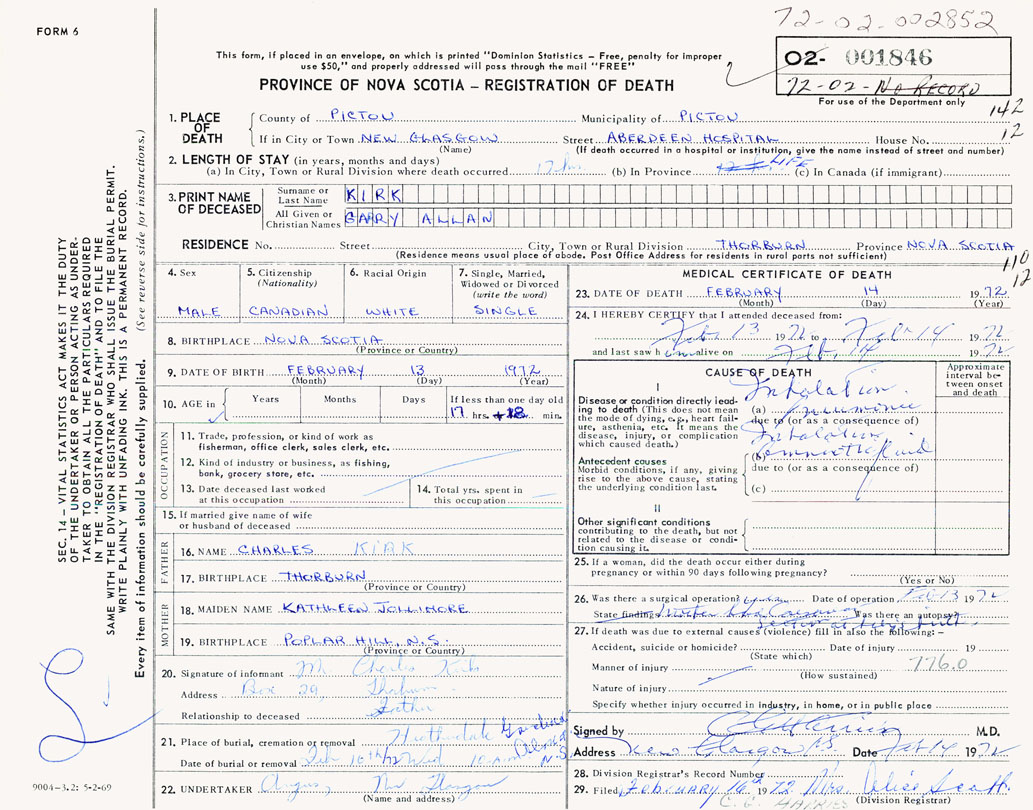 FORM 6
72-02-002852
This form, if placed in an envelope, on which is printed "Dominion Statistics – Free, penalty for improper
use $50," and properly addressed will pass through the mail "FREE"
02- 001846
72-02- No Record
For use of the Department only
PROVINCE OF NOVA SCOTIA – REGISTRATION OF DEATH
142
12
1. PLACE OF DEATH
County of PICTOU Municipality of PICTOU
If in City or Town NEW GLASGOW Street ABERDEEN HOSPITAL House No.
(Name) (If death occurred in a hospital or institution, give the name instead of street and number)
2. LENGTH OF STAY (in years, months and days)
(a) In City, Town or Rural Division where death occurred 17 hrs (b) In Province LIFE (c) In Canada (if immigrant)
3. PRINT NAME OF DECEASED
Surname or Last Name KIRK
All Given or Christian Names GARRY ALLAN
RESIDENCE No. Street City, Town or Rural Division THORBURN Province NOVA SCOTIA
(Residence means usual place of abode. Post Office Address for residents in rural parts not sufficient)
110
12
4. Sex
MALE
5. Citizenship (Nationality)
CANADIAN
6. Racial Origin
WHITE
7. Single, Married, Widowed or Divorced (write the word)
SINGLE
8. BIRTHPLACE NOVA SCOTIA
(Province or Country)
9. DATE OF BIRTH FEBRUARY 13 1972
(Month) (Day) (Year)
10. AGE in Years Months Days If less than one day old
17 hrs. 18 min.
OCCUPATION
11. Trade, profession, or kind of work as
fisherman, office clerk, sales clerk, etc.
12. Kind of industry or business, as fishing,
bank, grocery store, etc.
13. Date deceased last worked
at this occupation
14. Total yrs. spent in
this occupation
15. If married give name of wife
or husband of deceased
FATHER
16. NAME CHARLES KIRK
17. BIRTHPLACE THORBURN
(Province or Country)
MOTHER
18. MAIDEN NAME KATHLEEN JOLLIMORE
19. BIRTHPLACE POPLAR HILL, N.S.
(Province or Country)
20. Signature of informant Mr. Charles Kirk
Address Box 29, Thorburn
Relationship to deceased Father
21. Place of burial, cremation or removal Heatherdale Gardens
Date of burial or removal Feb 16th/72 Wed N.S.
22. UNDERTAKER Angus, New Glasgow
(Name and address)
MEDICAL CERTIFICATE OF DEATH
23. DATE OF DEATH FEBRUARY 14 1972
(Month) (Day) (Year)
24. I HEREBY CERTIFY that I attended deceased from:
Feb 13 1972 to Feb 14 1972
and last saw him alive on Feb. 14 1972
CAUSE OF DEATH
Approximate interval between onset and death
I
Disease or condition directly leading
to death (This does not mean
the mode of dying, e.g., heart failure,
asthenia, etc. It means the
disease, injury, or complication
which caused death.)
(a) Inhalation pneumonia
due to (or as a consequence of)
Antecedent causes
Morbid conditions, if any, giving
rise to the above cause, stating
the underlying condition last.
(b) Inhalation amniotic fluid
due to (or as a consequence of)
(c)
II
Other significant conditions
contributing to the death, but not
related to the disease or condition
causing it.
25. If a woman, did the death occur either during
pregnancy or within 90 days following pregnancy?
(Yes or No)
26. Was there a surgical operation? Date of operation Feb 13 1972
State findings Mother had Caesarean Was there an autopsy?
Section at
27. If death was due to external causes (violence) fill in also the following: –
Accident, suicide or homicide? Date of injury 19
(State which)
776.0
Manner of injury
(How sustained)
Nature of injury
Specify whether injury occurred in industry, in home, or in public place
Signed by M.D.
Address New Glasgow NS Date Feb 14 1972
28. Division Registrar's Record Number
29. Filed February 16th 1972 Mrs. Alice Scott
(Division Registrar)
SEC. 14 – VITAL STATISTICS ACT MAKES IT THE DUTY
OF THE UNDERTAKER OR PERSON ACTING AS UNDERTAKER
TO OBTAIN ALL THE PARTICULARS REQUIRED
IN THE "REGISTRATION OF DEATH" AND TO FILE THE
SAME WITH THE DIVISION REGISTRAR WHO SHALL ISSUE THE BURIAL PERMIT.
WRITE PLAINLY WITH UNFADING INK. THIS IS A PERMANENT RECORD.
Every item of information should be carefully supplied. (See reverse side for instructions.)
9004-3.2: 5-2-69